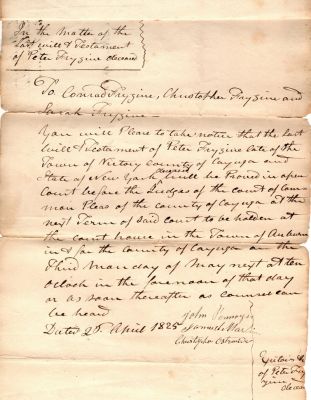 In the Matter of the
Last will & Testament
of Peter Frygine deceased
To Conrad Frygine, Christopher Frygine and
Sarah Frygine
You will Please to take notice that the last
Will & Testament of Peter Frygine late of the
Town of Victory County of Cayuga and
State of New York deceased will be Proved in open
Court before the Judges of the court of Com-
mon Pleas of the county of Cayuga at the
next Term of said court to be holden at
the court house in the Town of Auburn
in & for the county of Cayuga on the
third Monday of May next at ten
oclock in the forenoon of that day
or as soon thereafter as counsel can
be heard
Dated 25 April 1825
John
Samuel
Christopher
of Peter Fry
gine
deceas